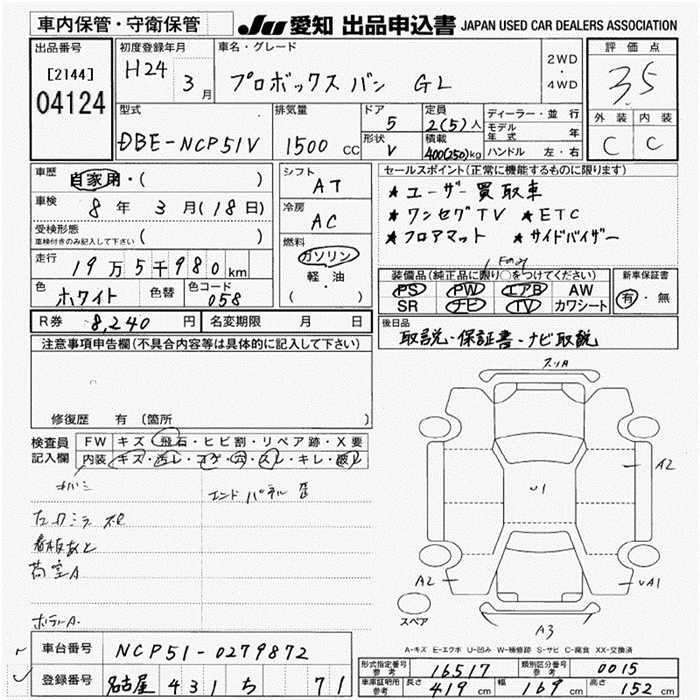 車内保管・守衛保管
JU 愛知 出品申込書 JAPAN USED CAR DEALERS ASSOCIATION
出品番号
[2144]
04124
初度登録年月
H24 3月
車名・グレード
プロボックス バン GL
2WD
・
4WD
評価点
3.5
外装 内装
C C
型式
DBE-NCP51V
排気量
1500 CC
ドア
5
形状
V
定員
2(5)人
積載
400(250)kg
ディーラー・並行
モデル年式 年
ハンドル 左・右
車歴
自家用・( )
車検
8年3月(18日)
受検形態
車検付きのみ記入して下さい ( )
走行
19万5千980km
色
ホワイト
色替
色コード
058
シフト
AT
冷房
AC
燃料
ガソリン
軽・油
( )
セールスポイント(正常に機能するものに限ります)
★ユーザー買取車
★ワンセグTV ★ETC
★フロアマット ★サイドバイザー
装備品(純正品に限り○をつけてください)
PS PW エアB AW
SR ナビ TV カワシート
新車保証書
有・無
R券 8,240円
名変期限 月 日
後日品
取説・保証書・ナビ取説
注意事項申告欄(不具合内容等は具体的に記入して下さい)
修復歴 有 (箇所 )
検査員記入欄
FW キズ・飛石・ヒビ割・リペア跡・X要
内装 キズ・汚レ・コゲ・穴・スレ・キレ・破レ
エンドパネル
看板あと
荷室A
ボデーA
スリA
U1
A2
A2
UA1
A3
スペア
A-キズ E-エクボ U-凹み W-補修跡 S-サビ C-腐食 XX-交換済
車台番号
NCP51-0279872
登録番号
名古屋 431 ち 71
形式指定番号 参考
16517
類別区分番号 参考
0015
車庫証明用 参考
長さ 419cm 幅 169cm 高さ 152cm